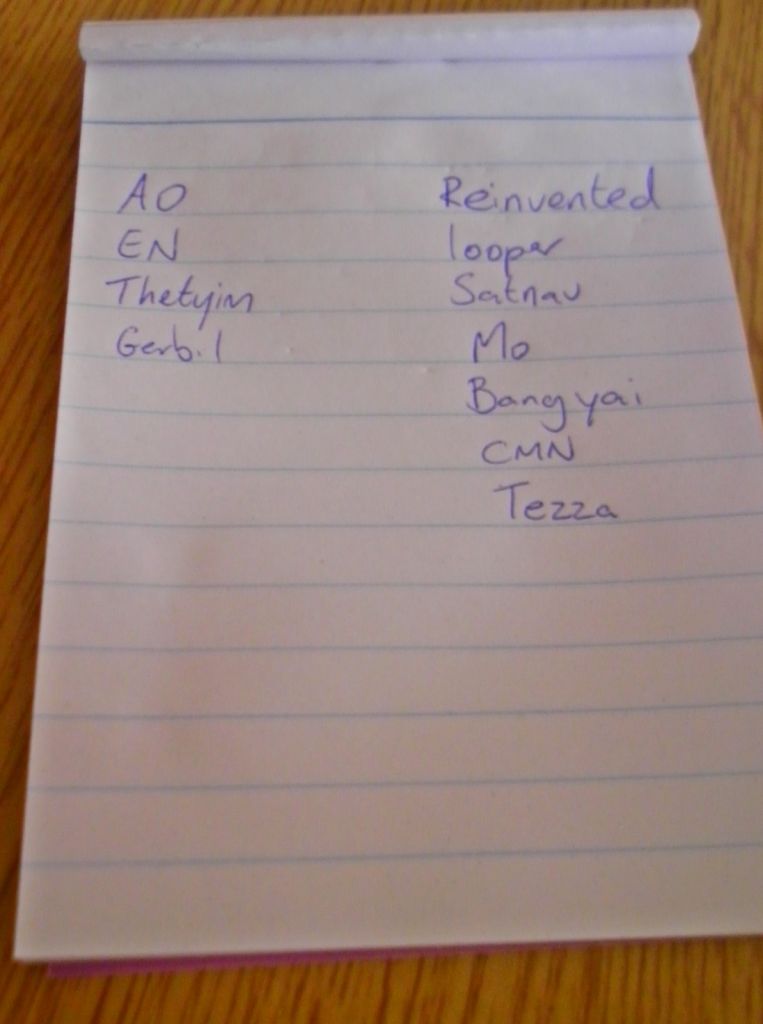 AO Reinvented
EN looper
Thetyim Satnav
Gerbil Mo
Bangyai
CMN
Tezza